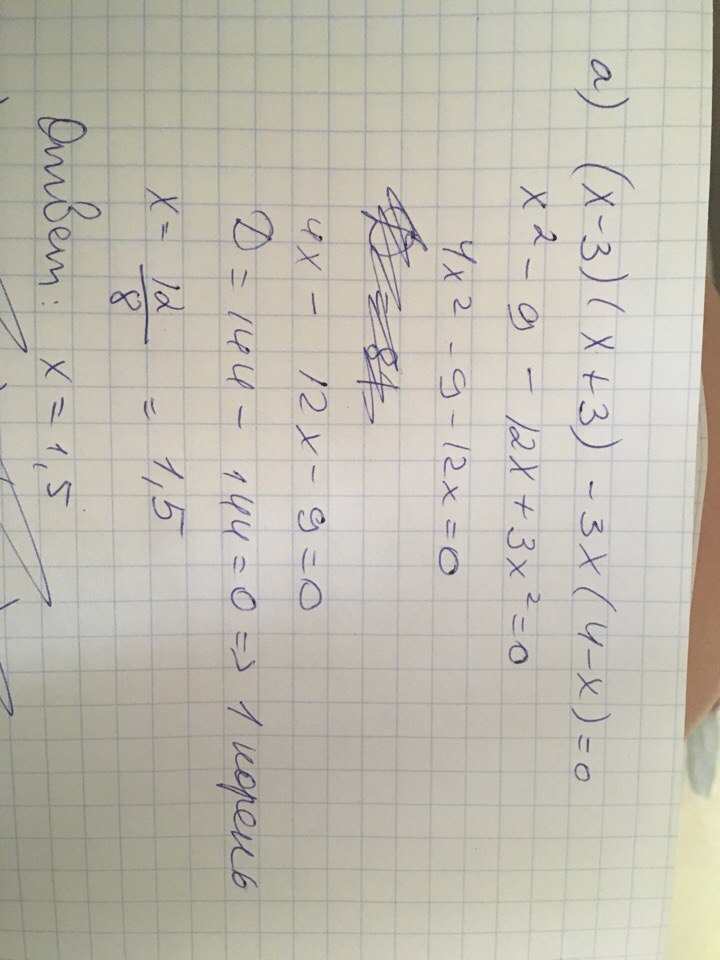 а) (x-3)(x+3) - 3x(4-x) = 0
x² - 9 - 12x + 3x² = 0
4x² - 9 - 12x = 0
4x - 12x - 9 = 0
D = 144 - 144 = 0 => 1 корень
x = 12/8 = 1,5
Ответ: x = 1,5